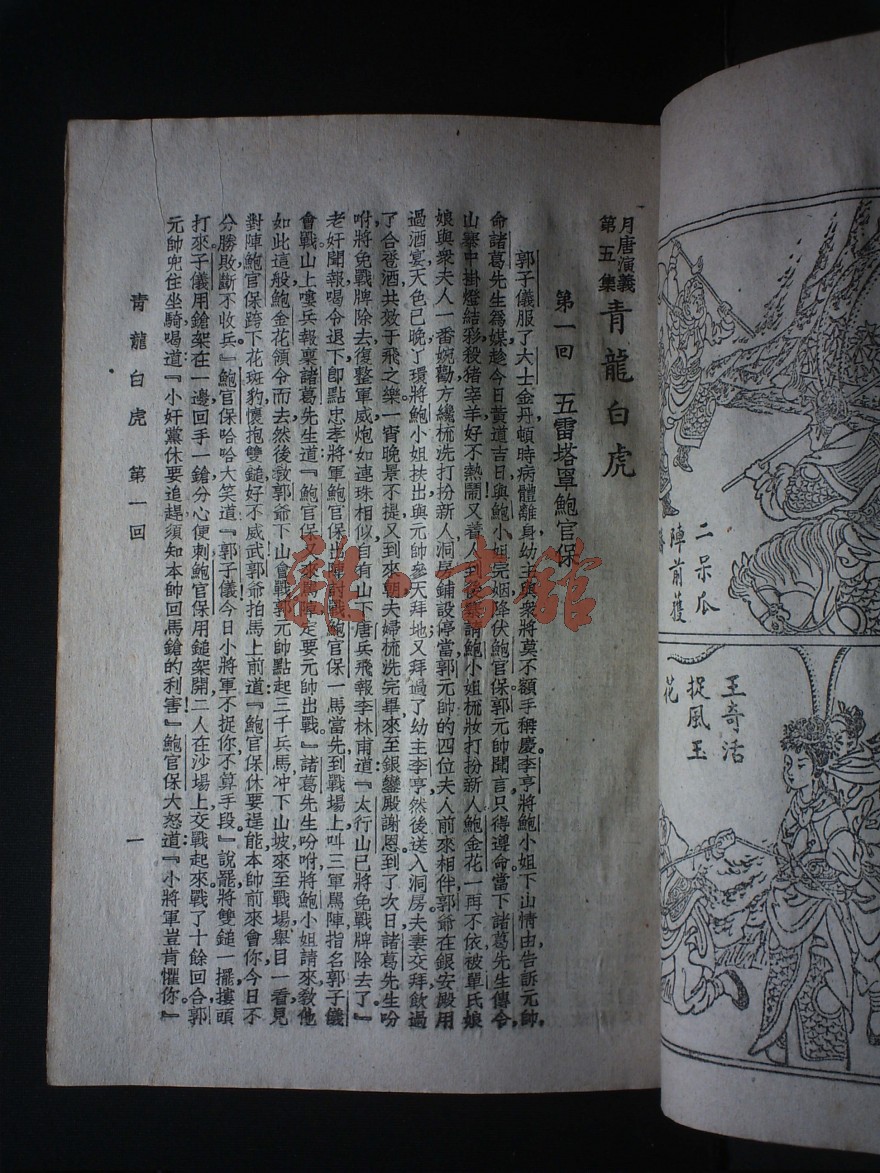 月唐演義
第五集
青龍白虎
第一回 五雷塔罩鮑官保
郭子儀服了大士金丹頓時病體離身幼主與衆將莫不額手稱慶李亨將鮑小姐下山情由告訴元帥
命諸葛先生爲媒趁今日黃道吉日與鮑小姐完姻降伏鮑官保郭元帥聞言只得遵命當下諸葛先生傳令
山寨中掛燈結彩殺猪宰羊好不熱鬧又着人到後寨請鮑小姐梳妝打扮新人鮑金花一再不依被單氏娘
娘與衆夫人一番婉勸方纔梳洗打扮新人洞房鋪設停當郭元帥的四位夫人前來相伴郭爺在銀安殿用
過酒宴天色已晚丫環將鮑小姐扶出與元帥參天拜地又拜過了幼主李亨然後送入洞房夫妻交拜飲過
了合卺酒共效于飛之樂一宵晚景不提又到來朝夫婦梳洗完畢來至銀鑾殿謝恩到了次日諸葛先生吩
咐將免戰牌除去復整軍威炮如連珠相似自有山下唐兵飛報李林甫道『太行山已將免戰牌除去了』
老奸聞報喝令退下卽點忠孝將軍鮑官保出陣討戰鮑官保一馬當先到戰場上叫三軍罵陣指名郭子儀
會戰山上嘍兵報稟諸葛先生道『鮑官保又來罵陣定要元帥出戰』諸葛先生吩咐將鮑小姐請來敎他
如此這般鮑金花領令而去然後敎郭爺下山會戰郭元帥點起三千兵馬冲下山坡來至戰場舉目一看見
對陣鮑官保跨下花斑豹懷抱雙鎚好不威武郭爺拍馬上前道『鮑官保休要逞能本帥前來會你今日不
分勝敗斷不收兵』鮑官保哈哈大笑道『郭子儀今日小將軍不捉你不算手段』說罷將雙鎚一擺摟頭
打來子儀用鎗架在一邊回手一鎗分心便刺鮑官保用鎚架開二人在沙場上交戰起來戰了十餘回合郭
元帥兜住坐騎喝道『小奸黨休要追趕須知本帥回馬鎗的利害』鮑官保大怒道『小將軍豈肯懼你』
青龍白虎 第一回
一
二呆瓜
陣前獲
王奇活
捉風玉
花
雜·書館